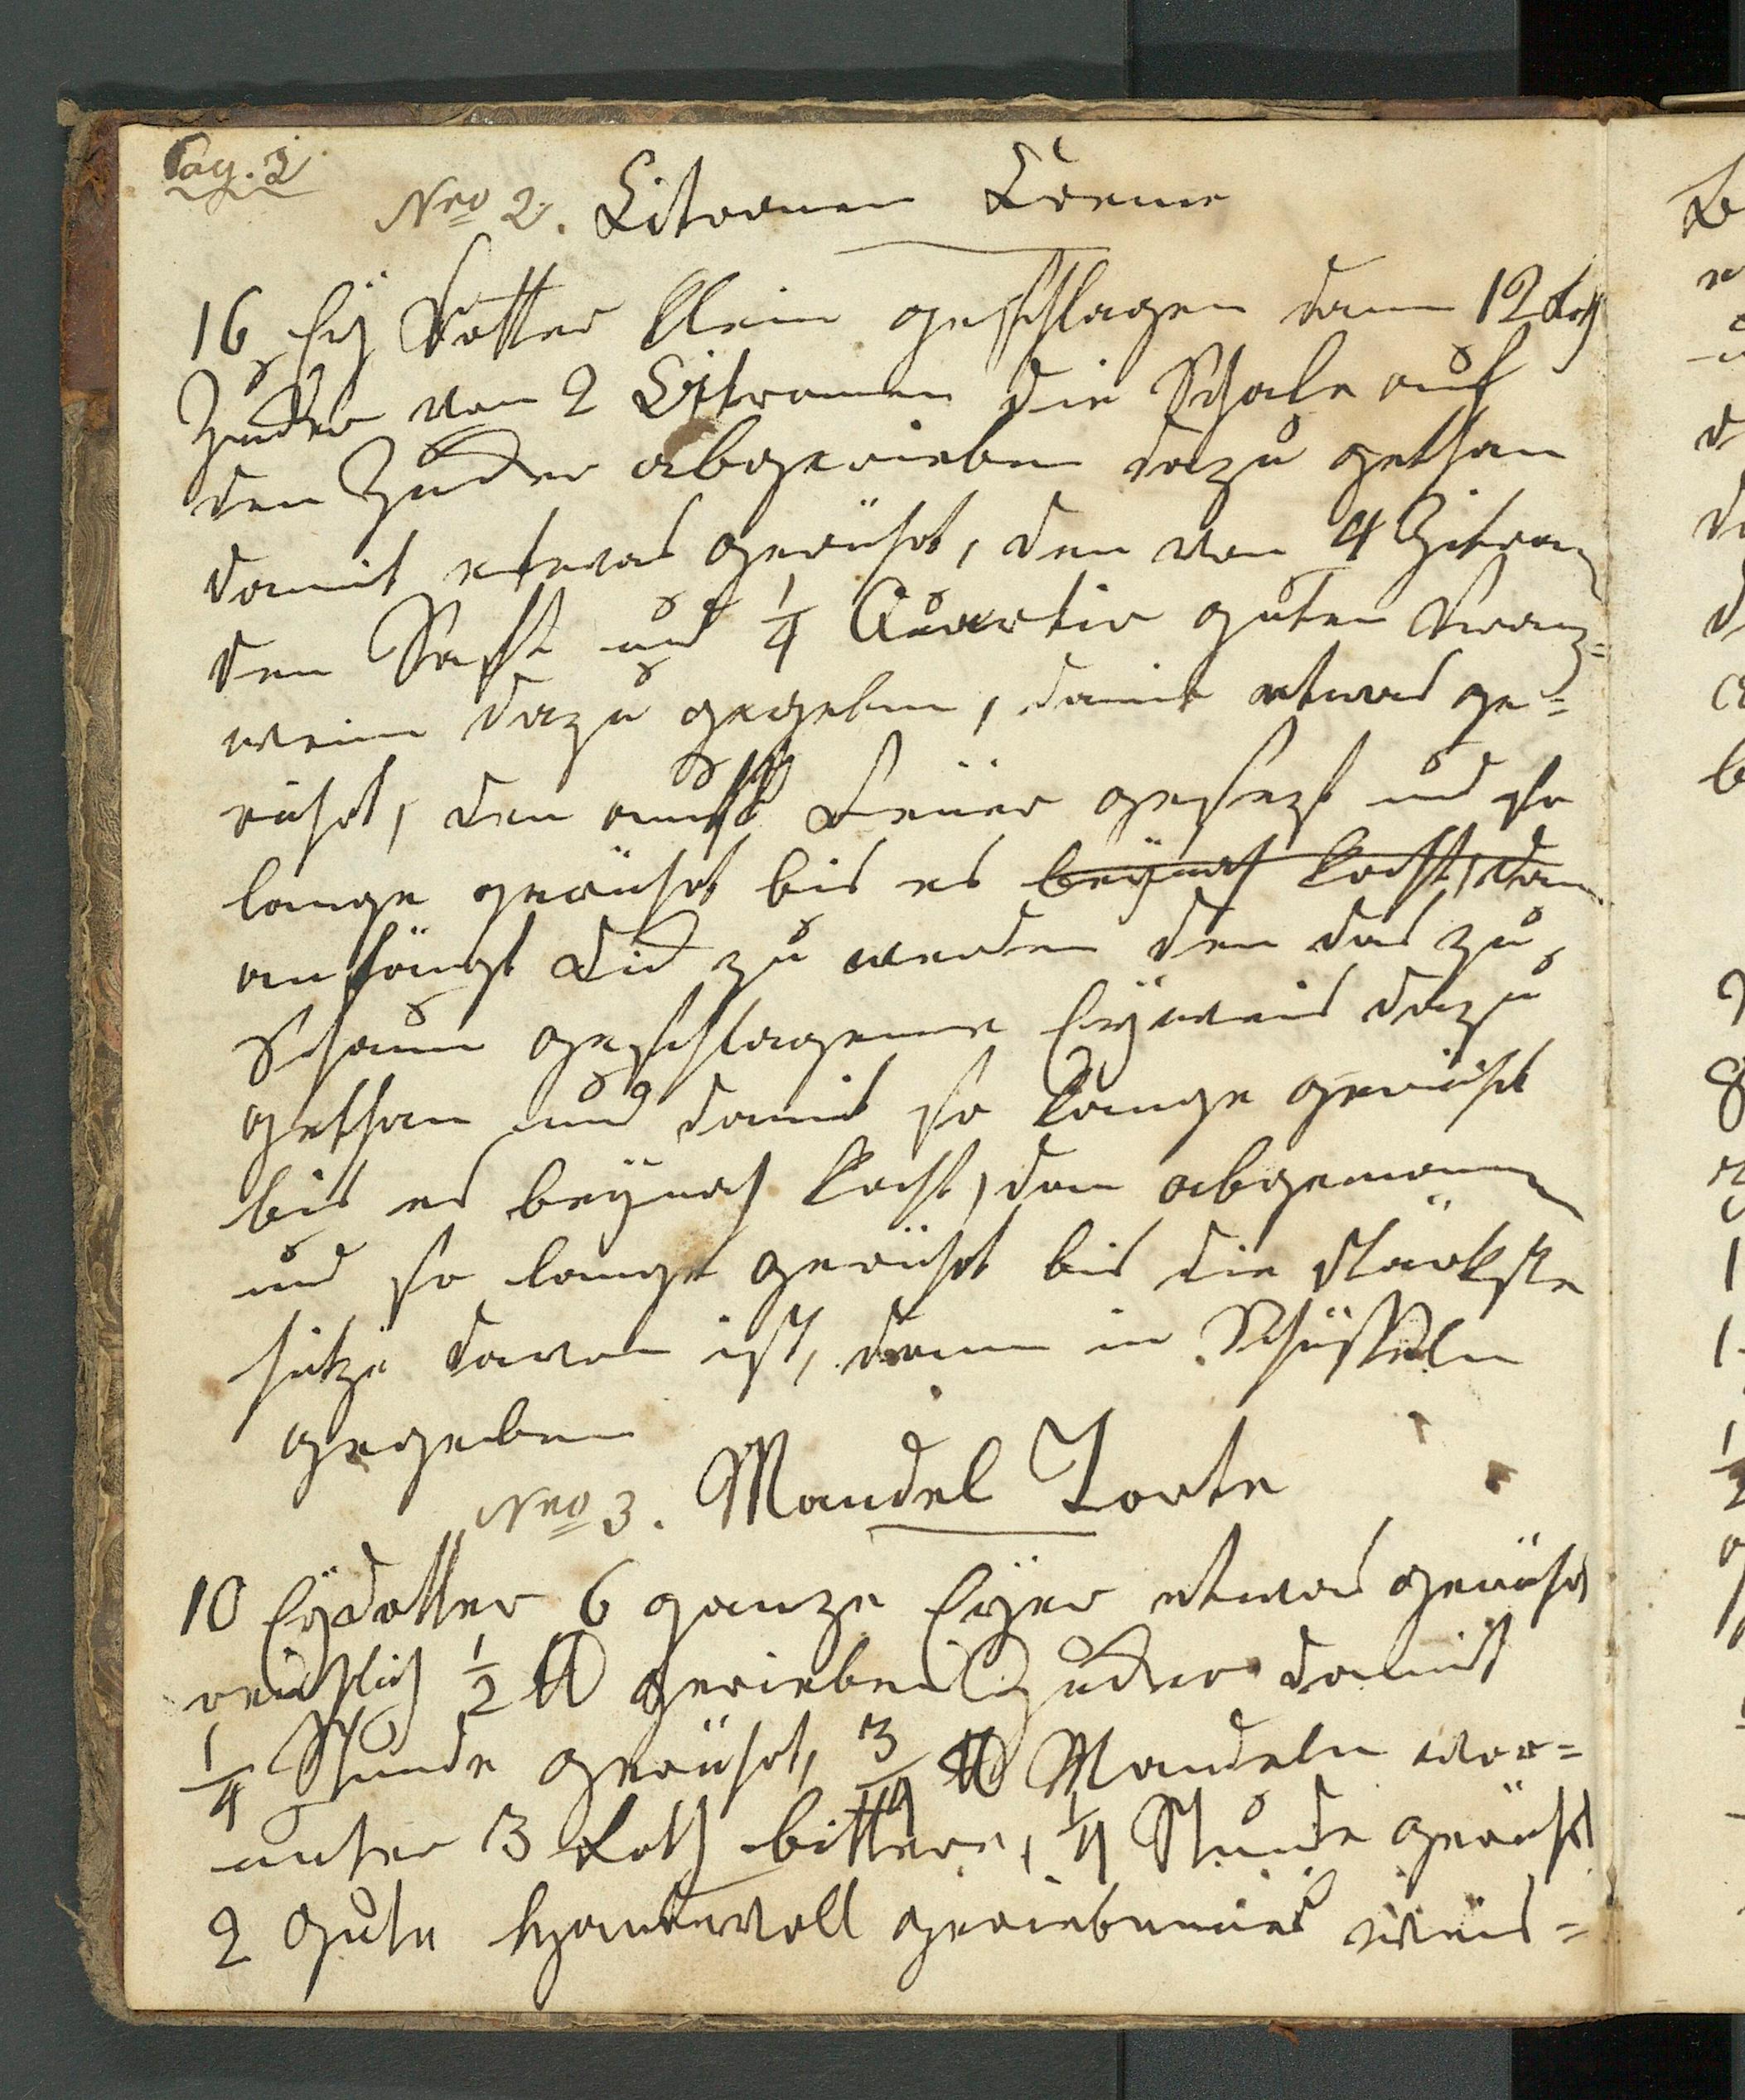 Pag. 2
Nro 2. Citronen Creme
16 Ey Dotter klein geschlagen dann 12 Loth
Zucker von 2 Citronen die Schale auf
den Zucker abgerieben dazu gethan
damit etwas gerührt, den von 4 Zitron
den Saft und 1/4 Quartir guten Franz=
wein dazu gegeben, damit etwas ge=
rührt, den aufs Feüer gesezt und so
lange gerührt bis es beÿnah kocht, dan
anfängt Dick zu werden den das zu
Schaum geschlagene Eÿweis dazu
gethan und damit so lange gerührt
bis es beÿnah kocht, dan abgenomen
und so lange gerührt bis die stärkste
hitze davon ist, dann in Schüsseln
gegeben
Nro 3. Mandel Torte
10 Eÿdotter 6 ganze Eÿer etwas gerührt
reichlich 1/2 ℔ gerieben Zucker damit
1/4 Stunde gerührt, 3/4 ℔ Mandeln wor=
unter 3 Loth bittere, 1/4 Stunde gerührt
2 gute Handevoll geriebenes weis=